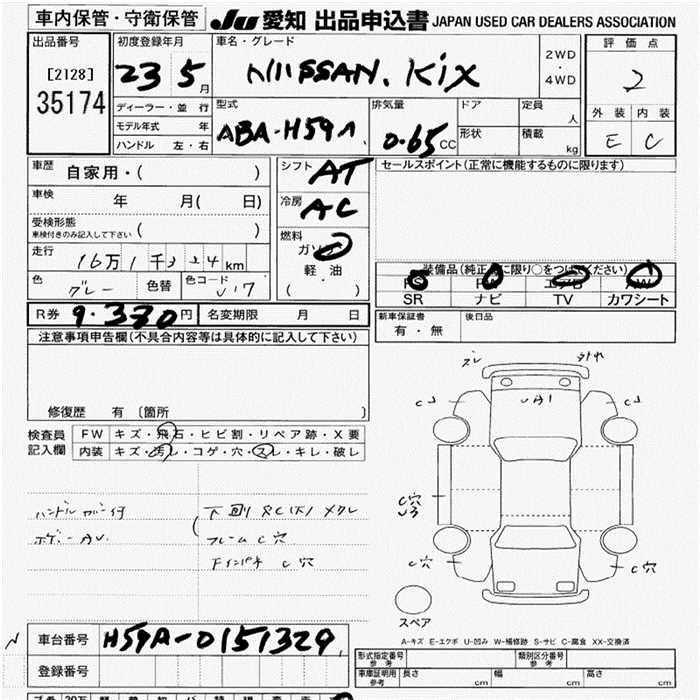 車内保管・守衛保管 JU 愛知 出品申込書 JAPAN USED CAR DEALERS ASSOCIATION
出品番号
[2128]
35174
初度登録年月
23 5月
ディーラー・並行
モデル年式 年
ハンドル 左・右
車名・グレード
NIISSAN. KiX
2WD
・
4WD
型式
ABA-H59A
排気量
0.65CC
ドア
形状
定員 人
積載 kg
評価点
2
外装 内装
E C
車歴 自家用・( )
車検 年 月( 日)
受検形態
車検付きのみ記入して下さい ( )
走行 16万1千3 24km
色 グレー 色替 色コード
シフト AT
冷房 AC
燃料
ガソリン
軽油
( ・ )
セールスポイント(正常に機能するものに限ります)
装備品(純正品に限り○をつけてください)
PS PW エアB AW
SR ナビ TV カワシート
R券 9.330円 名変期限 月 日
新車保証書
有・無
後日品
注意事項申告欄(不具合内容等は具体的に記入して下さい)
修復歴 有 〔箇所 〕
検査員
記入欄
FW キズ・飛石・ヒビ割・リペア跡・X要
内装 キズ・汚レ・コゲ・穴・スレ・キレ・破レ
フレーム C穴
C穴
C穴
C穴
C穴
スペア
A-キズ E-エクボ U-凹み W-補修跡 S-サビ C-腐食 XX-交換済
車台番号 H59A-0151329
登録番号
形式指定番号
参考
類別区分番号
参考
車庫証明用
参考
長さ cm 幅 cm 高さ cm